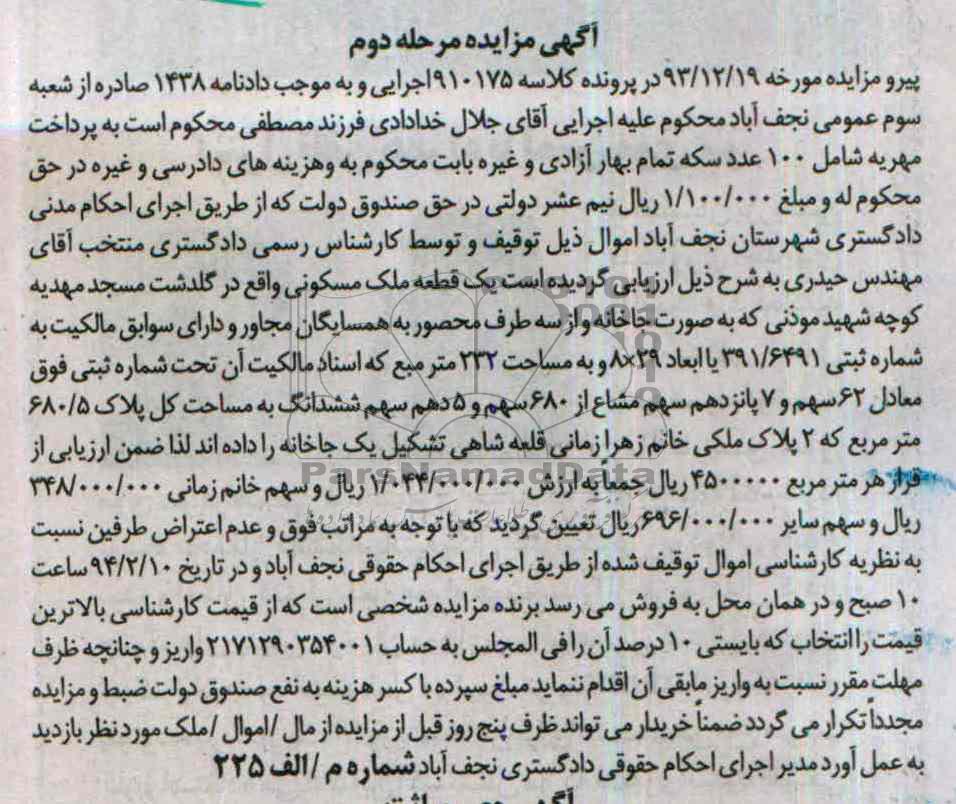 آگهی مزایده مرحله دوم
پیرو مزایده مورخه ۹۳/۱۲/۱۹ در پرونده کلاسه ۹۱۰۱۷۵ اجرایی و به موجب دادنامه ۱۴۳۸ صادره از شعبه
سوم عمومی نجف آباد محکوم علیه اجرایی آقای جلال خدادادی فرزند مصطفی محکوم است به پرداخت
مهریه شامل ۱۰۰ عدد سکه تمام بهار آزادی و غیره بابت محکوم به وهزینه های دادرسی و غیره در حق
محکوم له و مبلغ ۱/۱۰۰/۰۰۰ ریال نیم عشر دولتی در حق صندوق دولت که از طریق اجرای احکام مدنی
دادگستری شهرستان نجف آباد اموال ذیل توقیف و توسط کارشناس رسمی دادگستری منتخب آقای
مهندس حیدری به شرح ذیل ارزیابی گردیده است یک قطعه ملک مسکونی واقع در گلدشت مسجد مهدیه
کوچه شهید موذنی که به صورت جاخانه و از سه طرف محصور به همسایگان مجاور و دارای سوابق مالکیت به
شماره ثبتی ۳۹۱/۶۴۹۱ با ابعاد ۸×۲۹ و به مساحت ۲۳۲ متر مبع که اسناد مالکیت آن تحت شماره ثبتی فوق
معادل ۶۲ سهم و ۷ پانزدهم سهم مشاع از ۶۸۰ سهم و ۵ دهم سهم ششدانگ به مساحت کل پلاک ۶۸۰/۵
متر مربع که ۲ پلاک ملکی خانم زهرا زمانی قلعه شاهی تشکیل یک جاخانه را داده اند لذا ضمن ارزیابی از
قرار هر متر مربع ۴۵۰۰۰۰۰ ریال جمعاً به ارزش ۱/۰۴۴/۰۰۰/۰۰۰ ریال و سهم خانم زمانی ۳۴۸/۰۰۰/۰۰۰
ریال و سهم سایر ۶۹۶/۰۰۰/۰۰۰ ریال تعیین گردید که با توجه به مراتب فوق و عدم اعتراض طرفین نسبت
به نظریه کارشناسی اموال توقیف شده از طریق اجرای احکام حقوقی نجف آباد و در تاریخ ۹۴/۲/۱۰ ساعت
۱۰ صبح و در همان محل به فروش می رسد برنده مزایده شخصی است که از قیمت کارشناسی بالاترین
قیمت را انتخاب که بایستی ۱۰ درصد آن را فی المجلس به حساب ۲۱۷۱۲۹۰۳۵۴۰۰۱ واریز و چنانچه ظرف
مهلت مقرر نسبت به واریز مابقی آن اقدام ننماید مبلغ سپرده با کسر هزینه به نفع صندوق دولت ضبط و مزایده
مجدداً تکرار می گردد ضمناً خریدار می تواند ظرف پنج روز قبل از مزایده از مال /اموال /ملک مورد نظر بازدید
به عمل آورد مدیر اجرای احکام حقوقی دادگستری نجف آباد شماره م /الف ۲۲۵
ParsNamadData